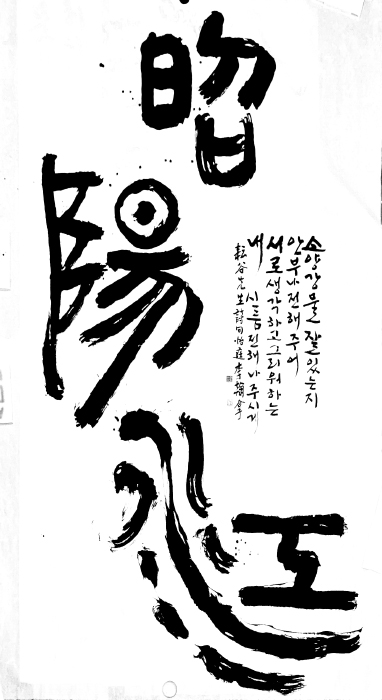 昭
陽
江
소양강 물 잘 있는지
안부나 전해 주어
서로 생각하고 그리워하는
내 시름 전해나 주시게
耘谷先生詩句怡庭李